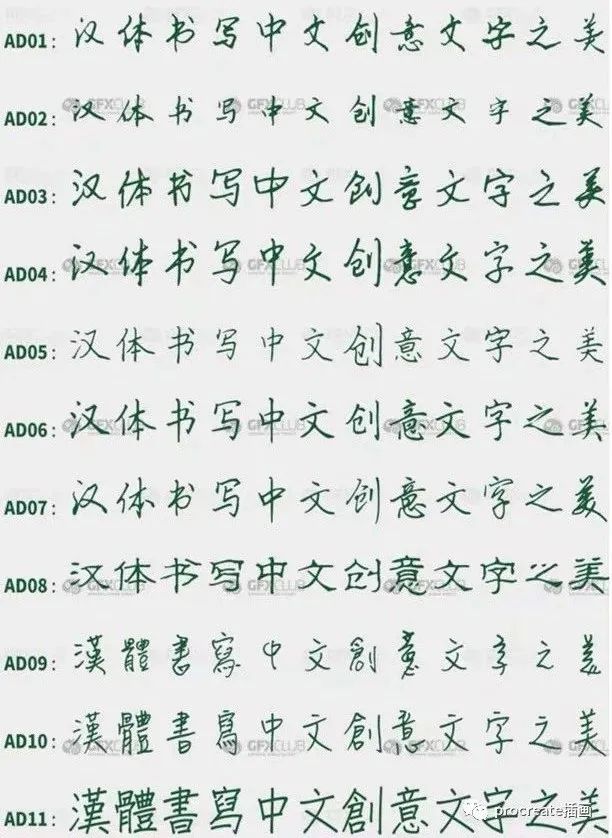 AD01: 汉体书写中文创意文字之美
AD02: 汉体书写中文创意文字之美
AD03: 汉体书写中文創意文字之美
AD04: 汉体书写中文创意文字之美
AD05: 汉体书写中文创意文字之美
AD06: 汉体书写中文创意文字之美
AD07: 汉体书写中文创意文字之美
AD08: 汉体书写中文创意文字之美
AD09: 漢體書寫中文創意文字之美
AD10: 漢體書寫中文創意文字之美
AD11: 漢體書寫中文創意文字之美
GFXCLUB
procreate插画